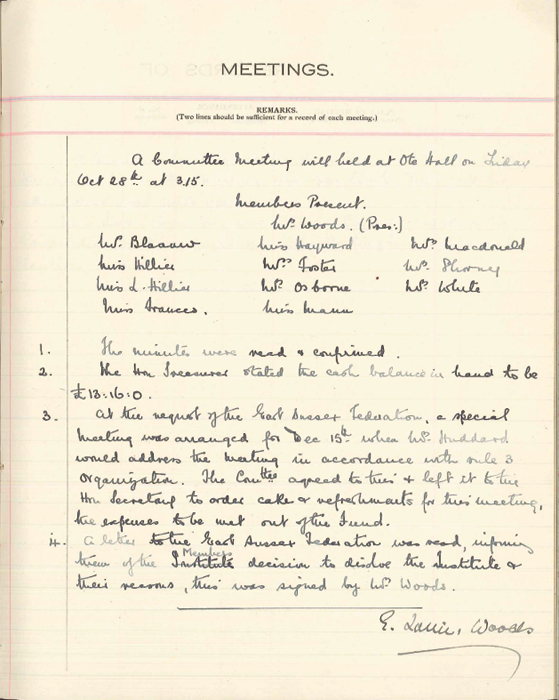 MEETINGS.
REMARKS.
(Two lines should be sufficient for a record of each meeting.)
A Committee Meeting will held at Ote Hall on Friday
Oct 28th at 3.15.
Members Present.
Mrs. Woods. (Pres:)
Mrs. Blaauw Miss Hayward Mrs. Macdonald
Miss Hillier Mrs. Foster Mrs.
Miss L. Hillier Mrs. Osborne Mrs. White
Miss Frances. Miss Mann
1. The minutes were read & confirmed.
2. The Hon Treasurer stated the cash balance in hand to be
£13:16:0.
3. At the request of the East Sussex Federation, a special
meeting was arranged for Dec 15th when Mrs. Huddard
would address the meeting in accordance with rule 3
Organization. The Comttee agreed to this & left it to the
Hon Secretary to order cake & refreshments for this meeting,
the expenses to be met out of the Fund.
4. A letter to the East Sussex Federation was read, informing
Members
them of the Institute decision to disolve the Institute &
their reasons, this was signed by Mrs Woods.
E. Woods